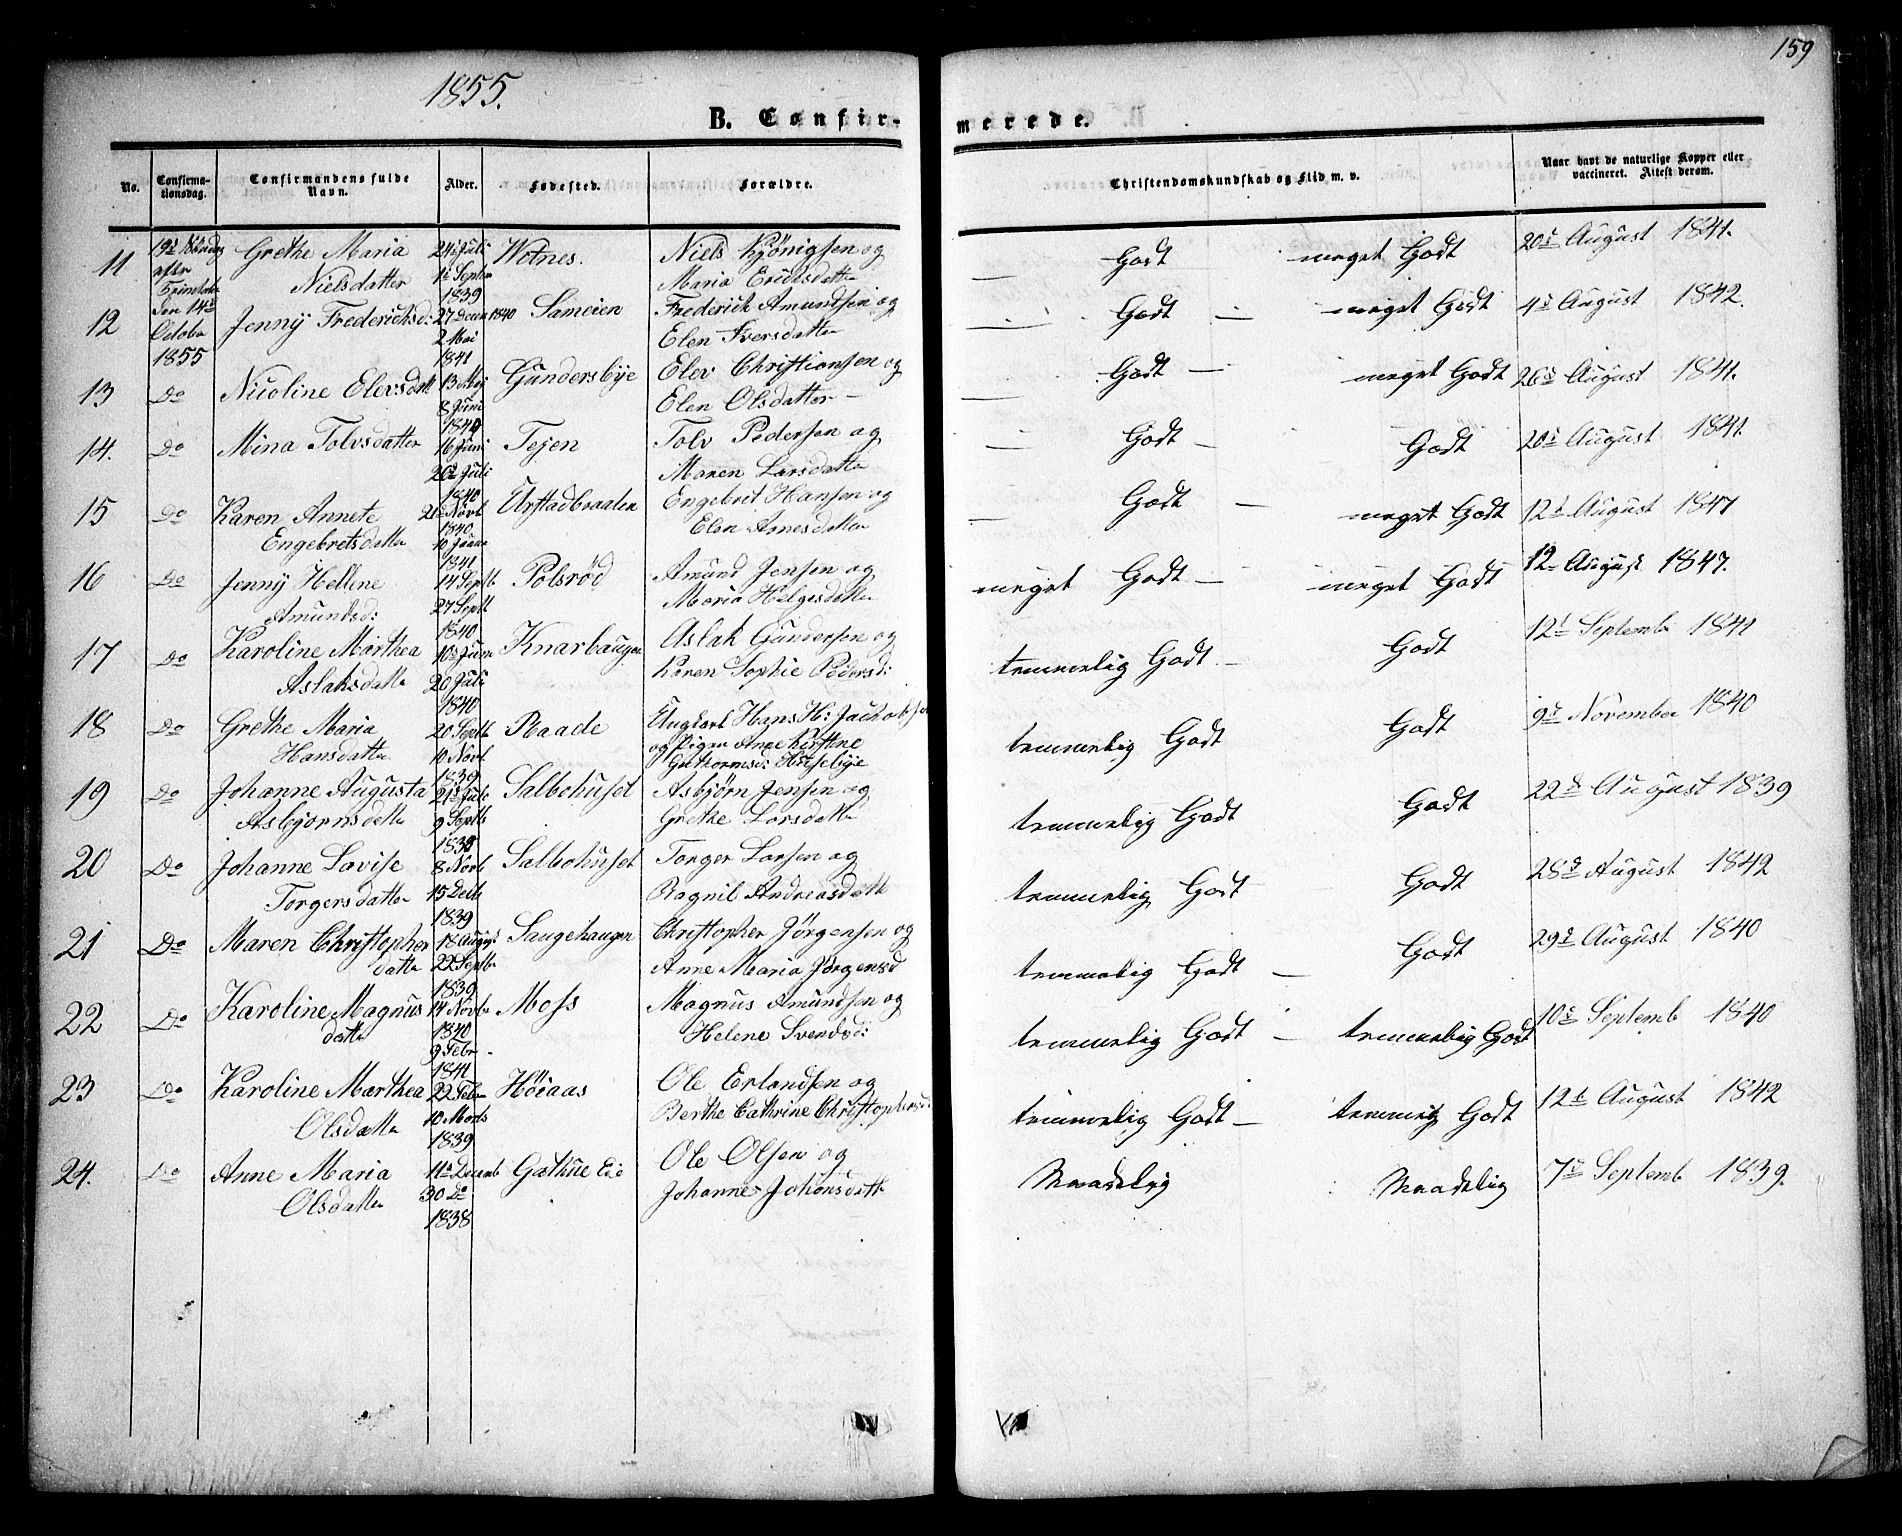 159
1855.
B. Confir-
merede.
No.
Confirma-
tionsdag.
Confirmandens fulde
Navn.
Alder.
Fødested.
Forældre.
Christendomskundskab og Flid m. v.
Naar havt de naturlige Kopper eller
vaccineret. Attest derom.
11 19d Søndag efter Trinitatis den 14d October 1855
Grethe Maria
Nielsdatter
24d Juli
1d Septem
1839
Wotnes.
Niels Kjönigsen og
Maria Ericksdatter
— Godt meget Godt
20d August 1841.
12
Jenny Fredericksd:
27 Decem 1840
2 Mai
1841
Sameien
Frederick Amundsen og
Elen Iversdatter
— Godt — meget Godt
4d August 1842.
13 Do
Nicoline Elevsdatt
13 Mai
8 Juni
1840
Gundersbye
Elev Christiansen og
Elen Olsdatter —
— Godt — meget Godt
26d August 1841.
14. Do
Mina Tolvsdatter
16 Juni
20d Juli
1840
Tejen
Tolv Pedersen og
Maren Larsdatter
— Godt — Godt
20d August 1841.
15 Do
Karen Annete
Engebretsdatter
21 Novb
1840
10 Janua
1841
Urstadbraaten
Engebret Hansen og
Elen Arnesdatter
— Godt — meget Godt
12t August 1847
16 Do
Jenny Helline
Amundsd:
14 Septb
27 Septb
1840
Polsrød
Amund Jensen og
Maria Helgesdatter
meget Godt — meget Godt
12 August 1847.
17 Do
Karoline Marthea
Aslaksdatte
10d Juni
20 Juli
1840
Knarhaugen
Aslak Gundersen og
Karen Sophie Pedersd:
temmelig Godt — Godt
12t Septembr 1841
18 Do
Grethe Maria
Hansdatter
20 Septb
10 Novb
1839
Raade
Ungkarl Hans H: Jackobsen
og Pigen Anne Kirstine
Guthormsd:
temmelig Godt Godt
9d November 1840
19 Do
Johanne Augusta
Asbjornsdatte
21d Juli
9 Septb
1838
Salbohuset
Asbjørn Jensen og
Grethe Larsdatte
temmelig Godt Godt
22d August 1839
20 Do
Johanne Lavise
Torgersdatter
8 Novb
15 Decb
1839
Salbohuset
Torger Larsen og
Ragnil Andreasdatt
temmelig Godt Godt
28d August 1842
21 Do
Maren Christopher
datte
18 August
22 Septbr
1839
Saugehaugen
Christopher Jörgensen og
Anne Maria Jørgensd
temmelig Godt — Godt
29d August 1840
22 Do
Karoline Magnus
datte
14 Novbr
1840
9 Febr
1841
Moss
Magnus Amundsen og
Helene Svendsd:
temmelig Godt — temmelig Godt
10d Septemb 1840
23 Do
Karoline Marthea
Olsdatte
22 Febr
10 Marts
1839
Höiaas
Ole Erlandsen og
Berthe Cathrine Christophersd:
temmelig Godt — temmelig Godt
12t August 1842
24. Do
Anne Maria
Olsdatter
11d Decemb
30 Do
1838
Gathue Eie
Ole Olsen og
Johanne Johansdatte
Maadelig Maadelig
7d Septemb 1839.